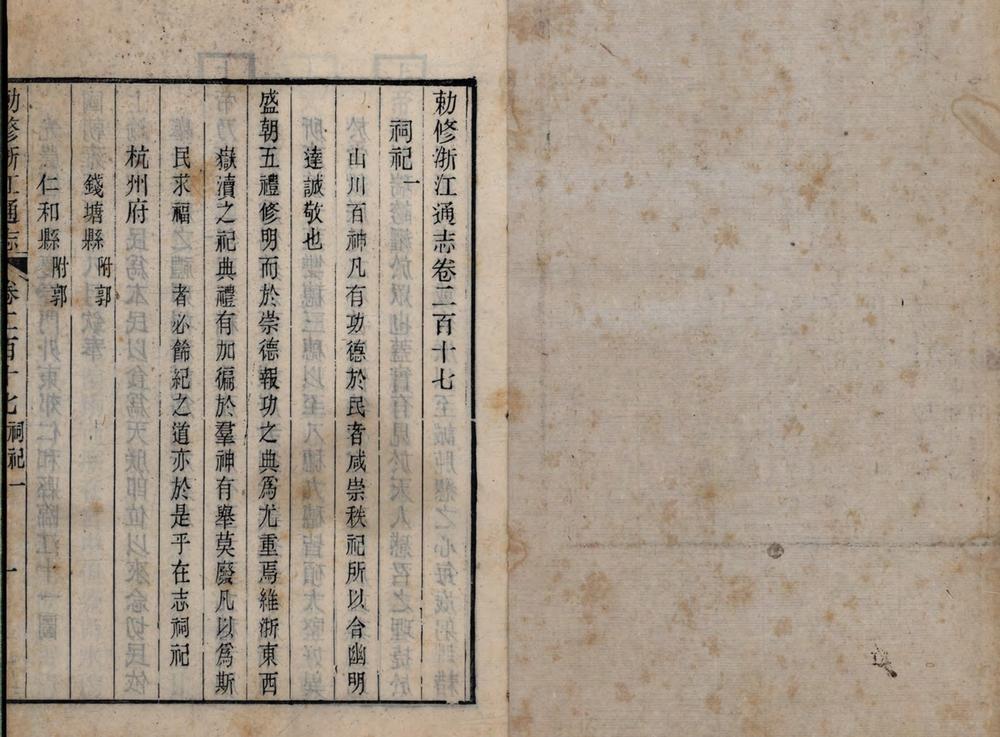 勅修浙江通志卷二百十七
祠祀一
山川百神凡有功德於民者咸崇秩祀所以合幽明
達誠敬也
盛朝五禮修明而於崇德報功之典爲尤重焉維浙東西
嶽瀆之祀典禮有加徧於羣神有舉莫廢凡以爲斯
民求福之禮者必餙紀之道亦於是乎在志祠祀
杭州府
錢塘縣附郭
仁和縣附郭
勅修浙江通志 卷二百十七祠祀一 一